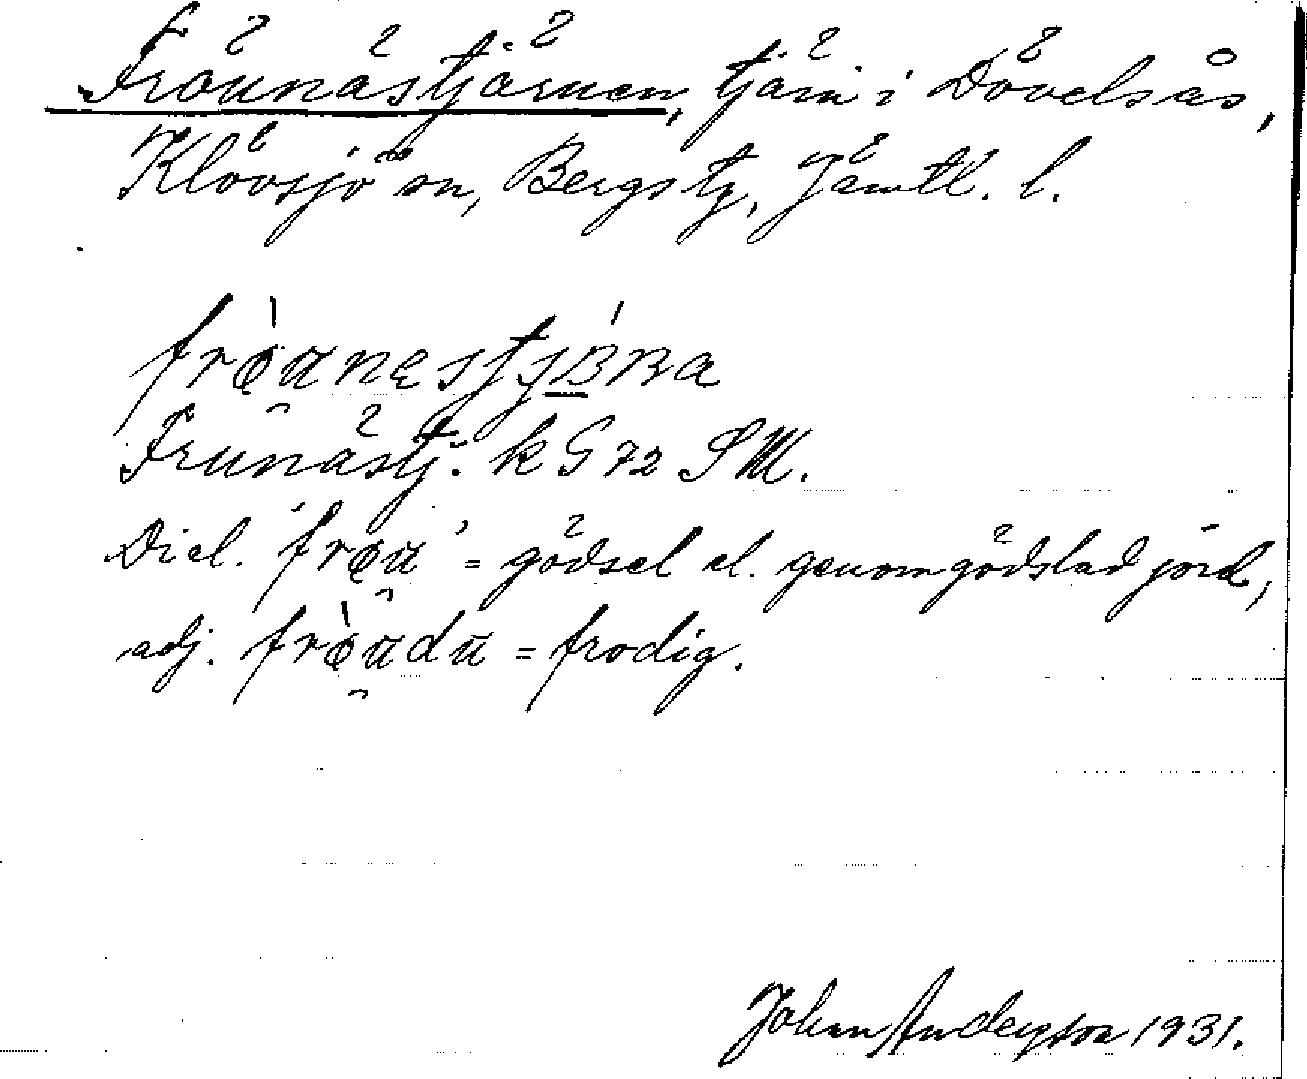 Fröunästjärnen, tjärn i Dövelsås,
Klövsjö sn, Bergs tg, Jämtl. l.
frø̀ʉnestjɞ́ʙna
Frunästj. k G 72 SW.
Dial. frøʉ = gödsel el. genomgödslad jord,
adj. frø̀ʉdʉ = frodig.
Johan Anderson 1931.